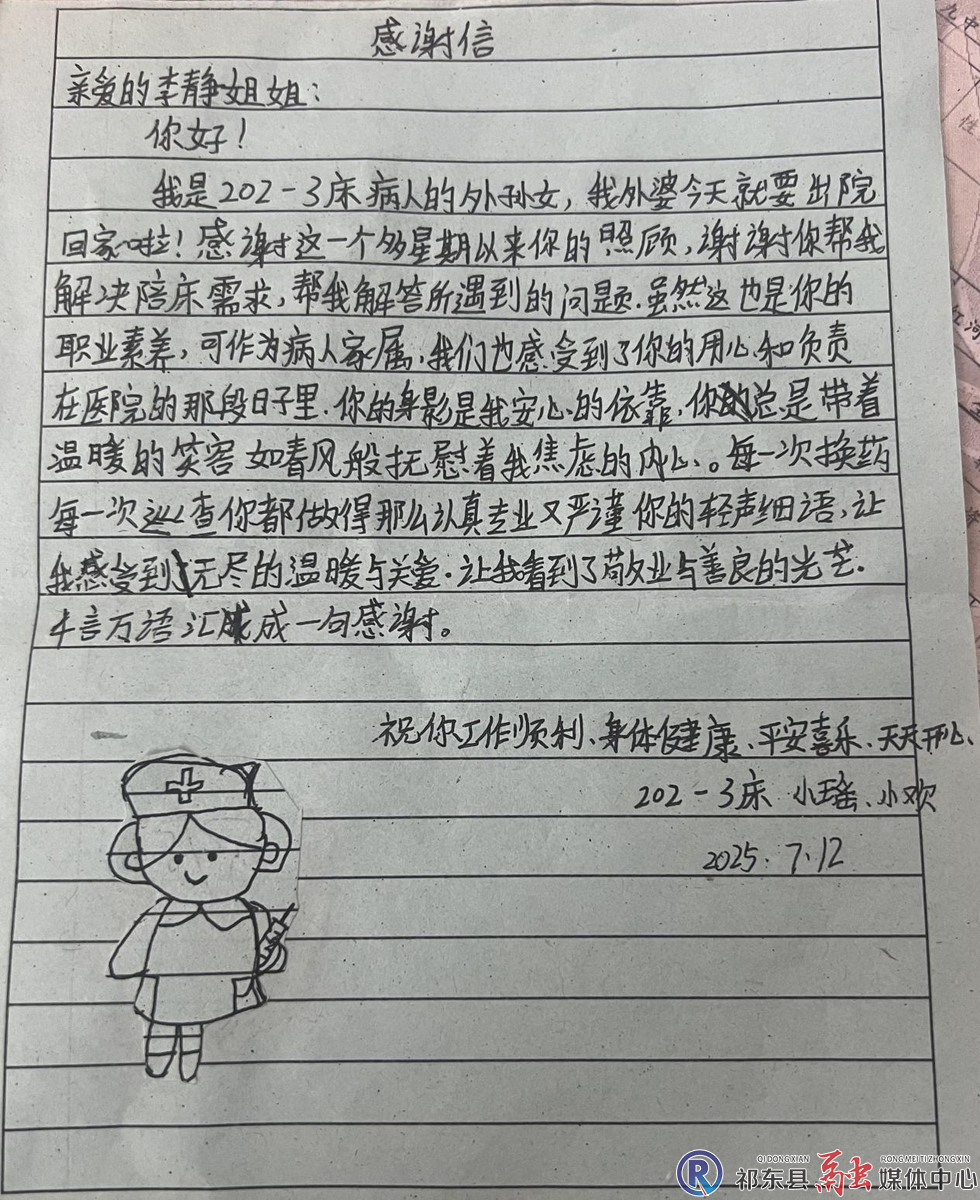 感谢信
亲爱的李静姐姐：
你好！
我是202-3床病人的外孙女，我外婆今天就要出院
回家啦！感谢这一个多星期以来你的照顾，谢谢你帮我
解决陪床需求，帮我解答所遇到的问题.虽然这也是你的
职业素养，可作为病人家属，我们也感受到了你的用心和负责
在医院的那段日子里.你的身影是我安心的依靠，你总是带着
温暖的笑容如春风般抚慰着我焦虑的内心。每一次换药
每一次巡查你都做得那么认真专业又严谨你的轻声细语，让
我感受到了无尽的温暖与关爱.让我看到了敬业与善良的光芒.
千言万语汇成一句感谢。
祝你工作顺利、身体健康、平安喜乐、天天开心、
202-3床 小瑶、小欢
2025.7.12
QIDONGXIAN RONGMEITIZHONGXIN
祁东县融媒体中心